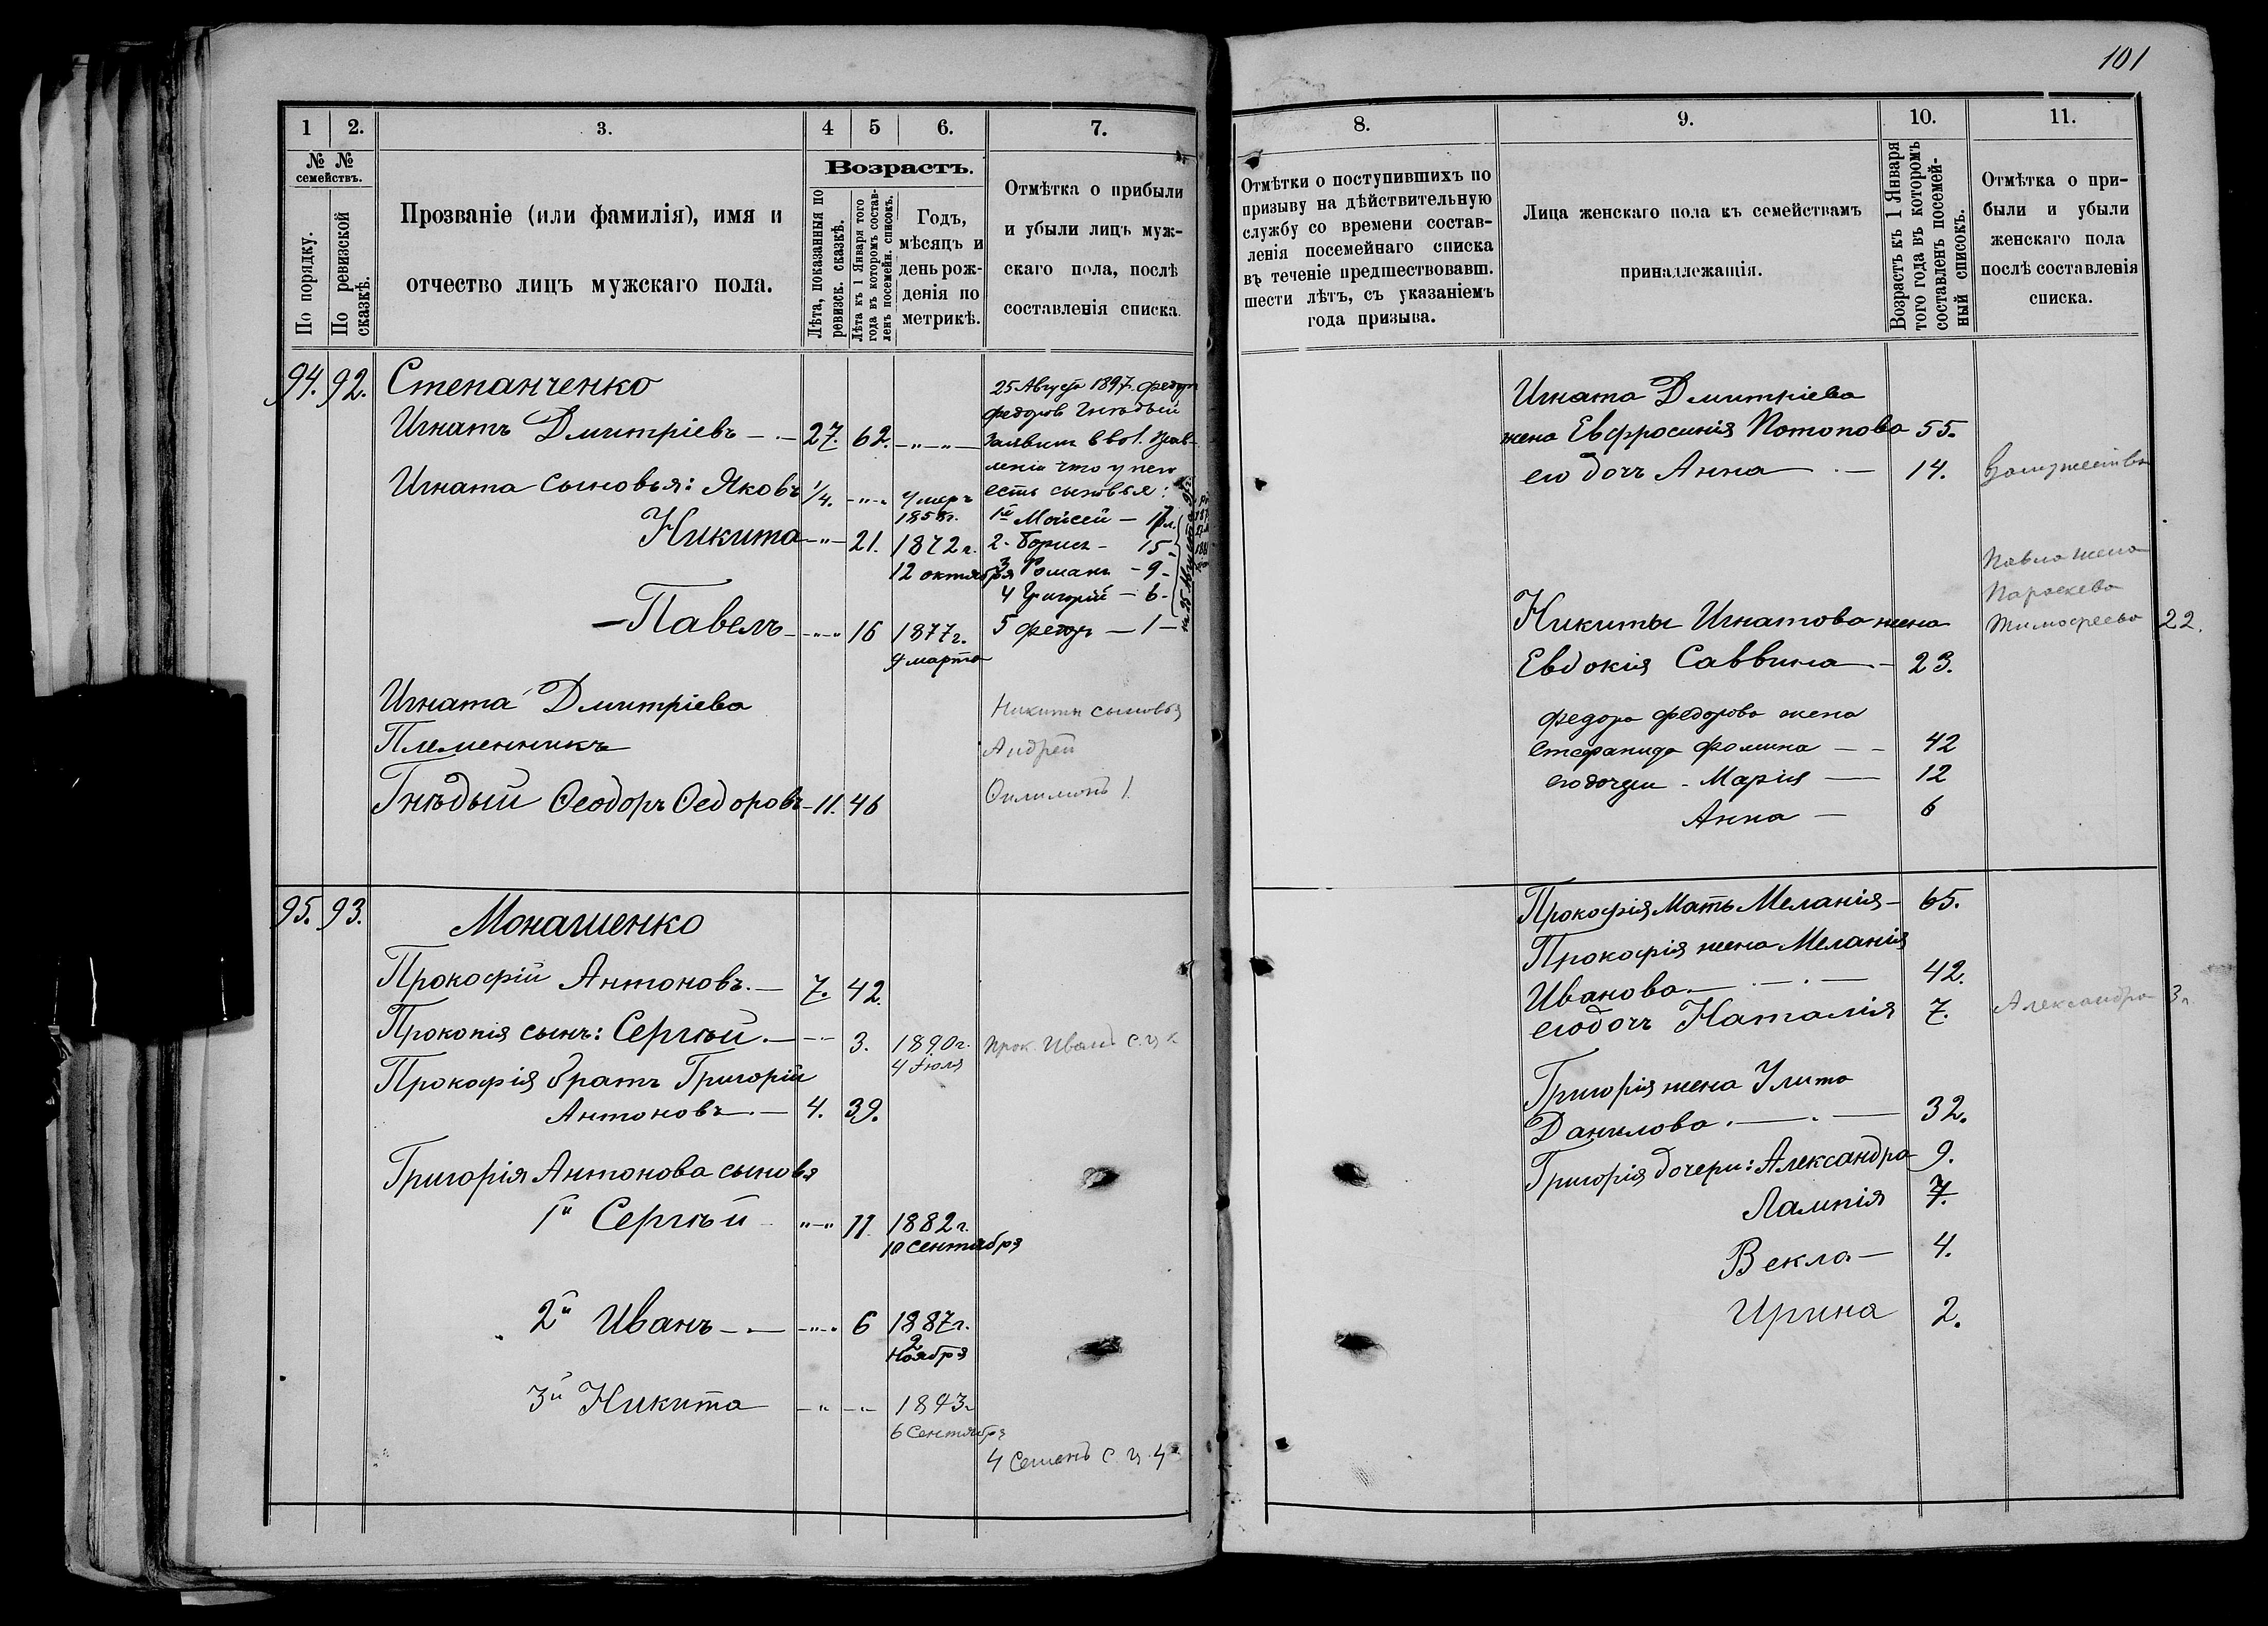 101
1
2.
3.
4
5
6.
7.
№ №
семействъ.
По порядку.
По ревизской
сказкѣ.
Прозваніе (или фамилія), имя и
отчество лицъ мужскаго пола.
Возрастъ.
Лѣта, показанныя по
ревизск. сказкѣ.
Лѣта къ 1 Января того
года въ которомъ состав-
ленъ посемейн. списокъ.
Годъ,
мѣсяцъ и
день рож-
денія по
метрикѣ.
Отмѣтка о прибыли
и убыли лицъ муж-
скаго пола, послѣ
составленія списка.
94. 92. Степанченко
Игнатъ Дмитріевъ 27. 62.
Игната сыновья: Яковъ 1/4. Умеръ
1858 г.
Никита 21. 1872 г.
12 октября
Павелъ 16 1877 г.
4 марта
Игната Дмитріева
Племенникъ
Гнѣдый Ѳеодоръ Ѳедоровъ 11. 46
25 Августа 1897 г. Федоръ
Федоровъ Гнѣдый
заявилъ в вол. Прав-
леніи что у него
есть сыновья:
1й Мойсей — 17 л.
2. Борисъ — 15 -
3 Романъ — 9 -
4 Григорій — 6 -
5 Федоръ — 1 -
Никиты сыновья
Андрей
Филимонъ 1
95. 93.
Монашенко
Прокофій Антоновъ. 7. 42.
Прокопія сынъ: Сергѣй. 3. 1890 г.
4 Іюля
Прок. Иванъ с.
Прокофія братъ Григорій
Антоновъ. 4. 39.
Григорія Антонова сыновя
1й Сергѣй 11 1882 г.
10 сентября
2й Иванъ 6 1887 г.
2
ноября
3й Никита 1893 г.
6 Сентября
4 Семенъ с.
8.
9.
10.
11.
Отмѣтки о поступившихъ по
призыву на дѣйствительную
службу со времени состав-
ленія посемейнаго списка
въ теченіе предшествовавш.
шести лѣтъ, съ указаніемъ
года призыва.
Лица женскаго пола къ семействамъ
принадлежащія.
Возрастъ къ 1 Января
того года въ которомъ
составленъ посемей-
ный списокъ.
Отмѣтка о при-
были и убыли
женскаго пола
послѣ составленія
списка.
Игната Дмитріева
жена Евфросинія Потопова 55.
его дочь Анна 14. Взамужестве
Павла жена
Параскева
Тимофеева 22.
Никиты Игнатова жена
Евдокія Саввина 23.
Федора Федорова жена
Степанида Фомина 42
его дочери - Марія 12
Анна 6
Прокофія Мать Меланія 65.
Прокофія жена Меланія
Иванова. 42.
его дочь Наталія 7. Александра 3 г.
Григорія жена Улита
Данилова. 32.
Григорія дочери: Александра 9.
Лампія 7.
Векла 4.
Ирина 2.